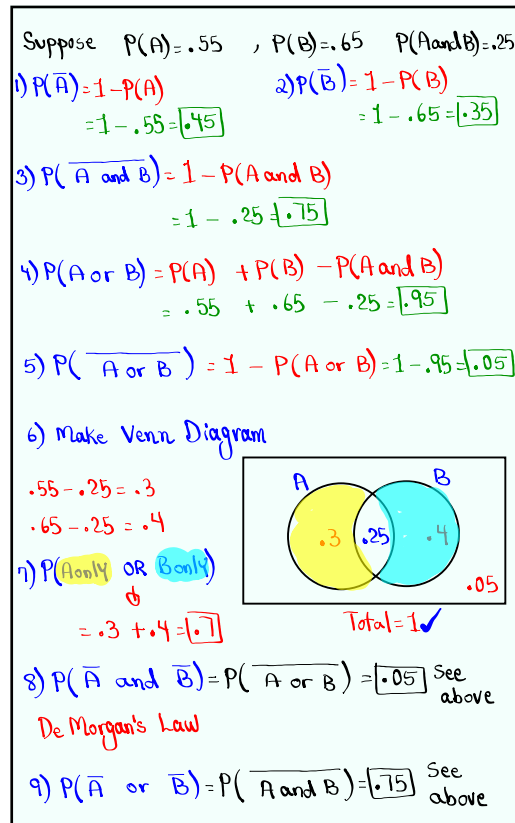 Suppose P(A)=.55 , P(B)=.65 P(A and B)=.25
1) P(A̅)=1-P(A)
=1-.55=.45
2) P(B̅)=1-P(B)
=1-.65=.35
3) P(A̅ ̅a̅n̅d̅ ̅B̅)=1-P(A and B)
=1-.25=.75
4) P(A or B)=P(A) +P(B) -P(A and B)
= .55 + .65 - .25=.95
5) P(A̅ ̅o̅r̅ ̅B̅)=1-P(A or B)=1-.95=.05
6) Make Venn Diagram
.55-.25=.3
.65-.25=.4
A B
.3 .25 .4
.05
Total=1✓
7) P(A only OR B only)
=.3+.4=.7
8) P(A̅ and B̅)=P(A̅ ̅o̅r̅ ̅B̅)=.05 See
above
De Morgan's Law
9) P(A̅ or B̅)=P(A̅ ̅a̅n̅d̅ ̅B̅)=.75 See
above